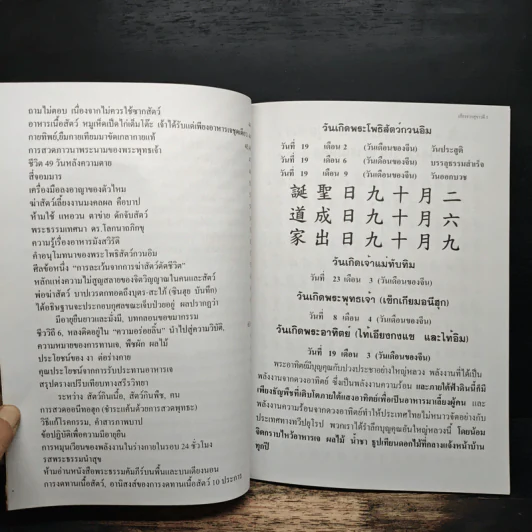 ถามไม่ตอบ เนื่องจากไม่ควรใช้ซากสัตว์
อาหารเนื้อสัตว์ หมูเห็ดเป็ดไก่เต็มโต๊ะ เจ้าได้รับแต่เพียงอาหารเจชุดเดียว
กายทิพย์,ยืมกายเทียมมาขัดเกลากายแท้
การสวดภาวนาพระนามของพระพุทธเจ้า
ชีวิต 49 วันหลังความตาย
สี่จอมมาร
เครื่องมือลงอาญาของตัวไหม
ฆ่าสัตว์เลี้ยงงานมงคลผล คือบาป
ห้ามใช้ แหอวน ตาข่าย ดักจับสัตว์
พระธรรมเทศนา ดร.โลกนาถภิกขุ
ความรู้เรื่องอาหารมังสวิรัติ
คำอนุโมทนาของพระโพธิสัตว์กวนอิม
ศีลข้อหนึ่ง "การละเว้นจากการฆ่าสัตว์ตัดชีวิต"
หลักแห่งความไม่สูญสลายของจิตวิญญาณในคนและสัตว์
พ่อฆ่าสัตว์ บาปเวรตกทอดถึงบุตร-สะใภ้ (ซินสุย บันทึก)
ได้อธิษฐานจะประกอบกุศลขณะเจ็บป่วยอยู่ ผลปรากฏว่า
มีอายุยืนยาวและมั่งมี, บทกลอนขอขมากรรม
ชีววิถี 6, หลงติดอยู่ใน "ความอร่อยลิ้น" นำไปสู่ความวิบัติ,
ความหมายของการทานเจ, พืชผัก ผลไม้
ประโยชน์ของ งา ต่อร่างกาย
คุณประโยชน์จากการรับประทานอาหารเจ
สรุปตารางเปรียบเทียบทางสรีรวิทยา
ระหว่าง สัตว์กินเนื้อ, สัตว์กินพืช, คน
การสวดอมิทอฮุก (ชำระแค้นด้วยการสวดพุทธะ)
วิธีแก้โรคกรรม, คำสารภาพบาป
ข้อปฏิบัติเพื่อความมีอายุยืน
การหมุนเวียนของพลังงานในร่างกายในรอบ 24 ชั่วโมง
รสพระธรรมนำสุข
ห้ามอ่านหนังสือพระธรรมคัมภีร์บนพื้นและบนเตียงนอน
การงดทานเนื้อสัตว์, อานิสงส์ของการงดทานเนื้อสัตว์ 10 ประการ
วันเกิดพระโพธิสัตว์กวนอิม
วันที่ 19 เดือน 2 (วันเดือนของจีน) วันประสูติ
วันที่ 19 เดือน 6 (วันเดือนของจีน) บรรลุธรรมสำเร็จ
วันที่ 19 เดือน 9 (วันเดือนของจีน) วันออกบวช
誕聖日九十月二
道成日九十月六
家出日九十月九
วันเกิดเจ้าแม่ทับทิม
วันที่ 23 เดือน 3 (วันเดือนของจีน)
วันเกิดพระพุทธเจ้า (เซ็กเกียมอนีฮุก)
วันที่ 8 เดือน 4 (วันเดือนของจีน)
วันเกิดพระอาทิตย์ (ไท้เอี๊ยงกงแซ และไท้อิม)
วันที่ 19 เดือน 3 (วันเดือนของจีน)
พระอาทิตย์มีบุญคุณกับปวงประชาอย่างใหญ่หลวง พลังงานที่ได้เป็น
พลังงานจากดวงอาทิตย์ ซึ่งเป็นพลังงานความร้อน และภายใต้ฟ้าดินนี้ก็มี
เพียงธัญพืชที่เติบโตภายใต้แสงอาทิตย์เพื่อเป็นอาหารมาเลี้ยงผู้คน และ
พลังงานความร้อนจากดวงอาทิตย์ทำให้ประเทศไทยไม่หนาวจัดอย่างกับ
ประเทศทางทวีปยุโรป พวกเราได้รำลึกบุญคุณอันใหญ่หลวงนี้ โดยน้อม
จิตกราบไหว้อาหารเจ ผลไม้ น้ำชา ธูปเทียนดอกไม้ที่กลางแจ้งหน้าบ้าน
ทุกปี